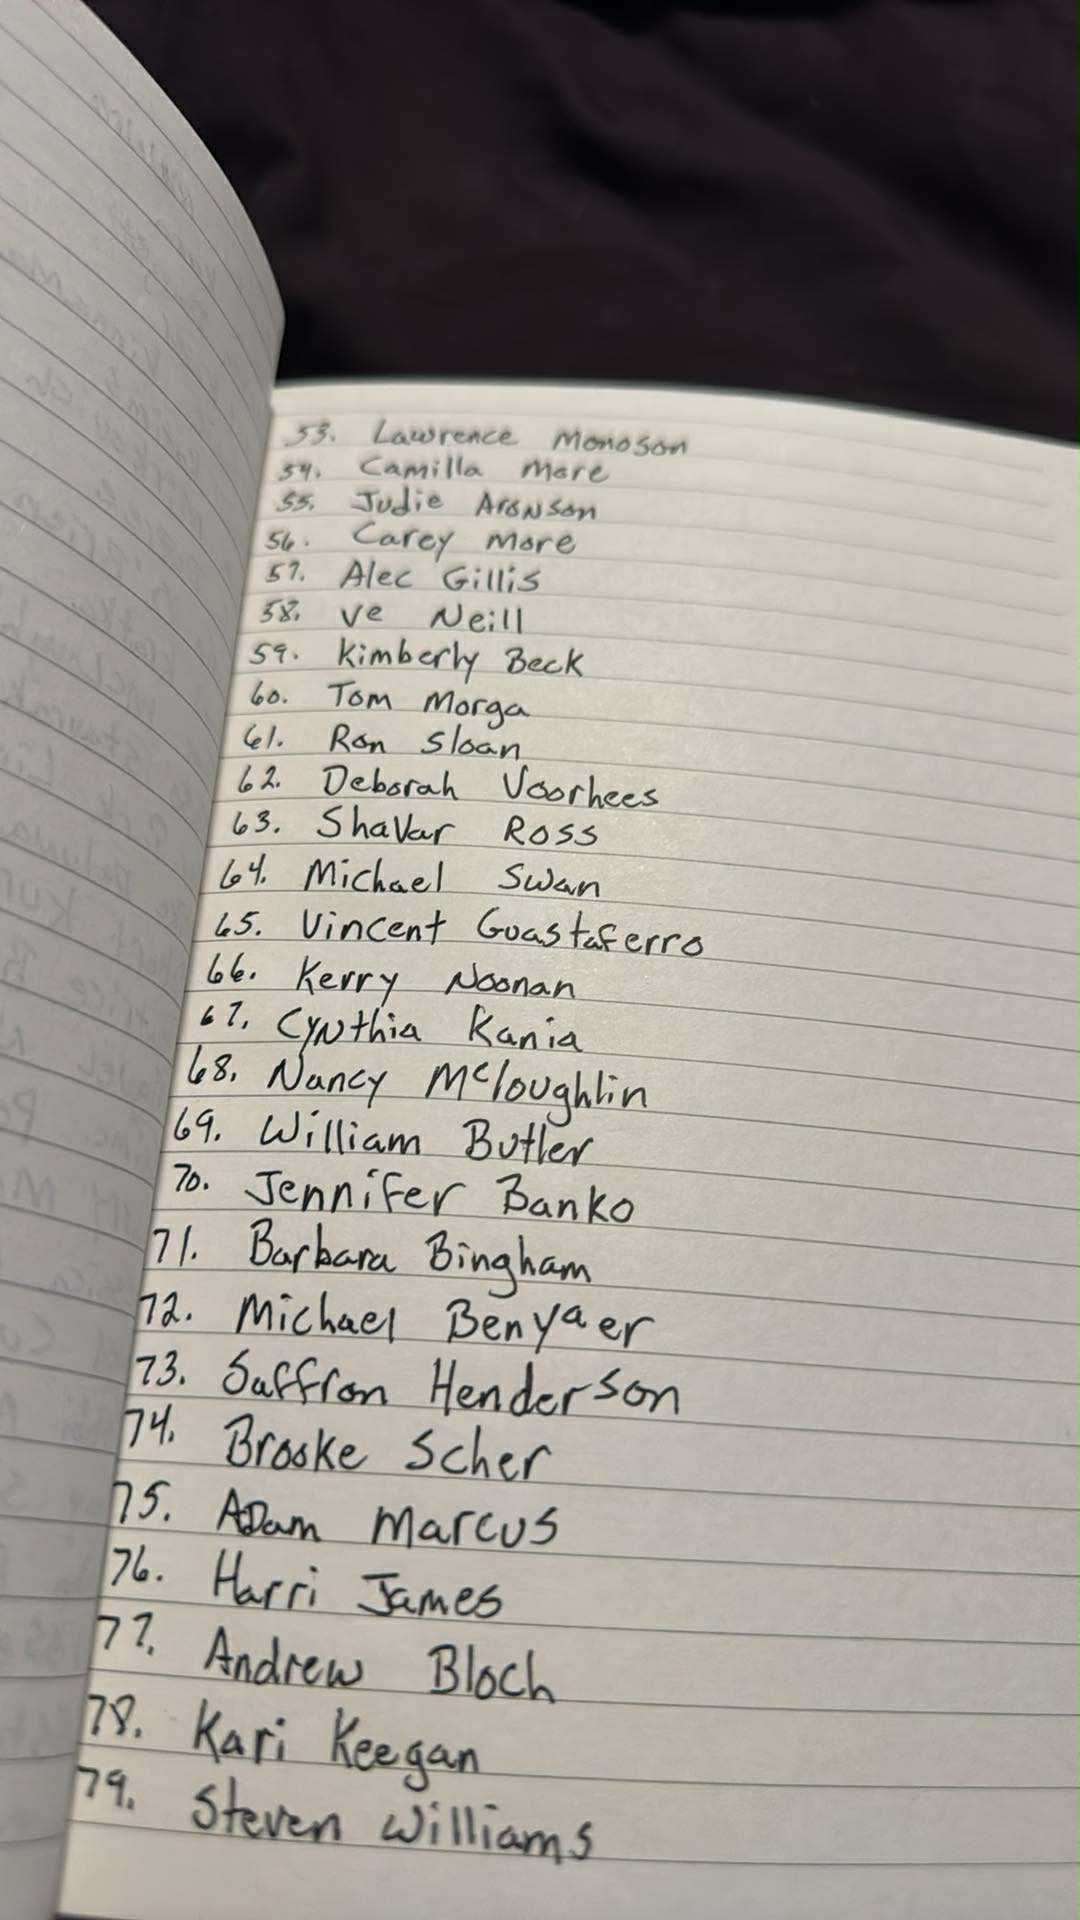 53. Lawrence Monoson
54. Camilla More
55. Judie Aronson
56. Carey More
57. Alec Gillis
58. Ve Neill
59. Kimberly Beck
60. Tom Morga
61. Ron Sloan
62. Deborah Voorhees
63. Shavar Ross
64. Michael Swan
65. Vincent Guastaferro
66. Kerry Noonan
67. Cynthia Kania
68. Nancy McLoughlin
69. William Butler
70. Jennifer Banko
71. Barbara Bingham
72. Michael Benyaer
73. Saffron Henderson
74. Brooke Scher
75. Adam Marcus
76. Harri James
77. Andrew Bloch
78. Kari Keegan
79. Steven Williams